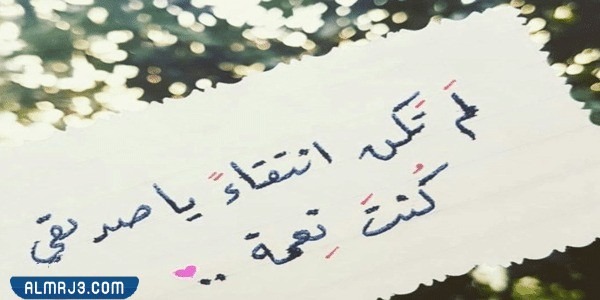 لَم تَكن انتقاءً يا صديقي
كُنتَ نِعمة ..
ALMRJ3.COM